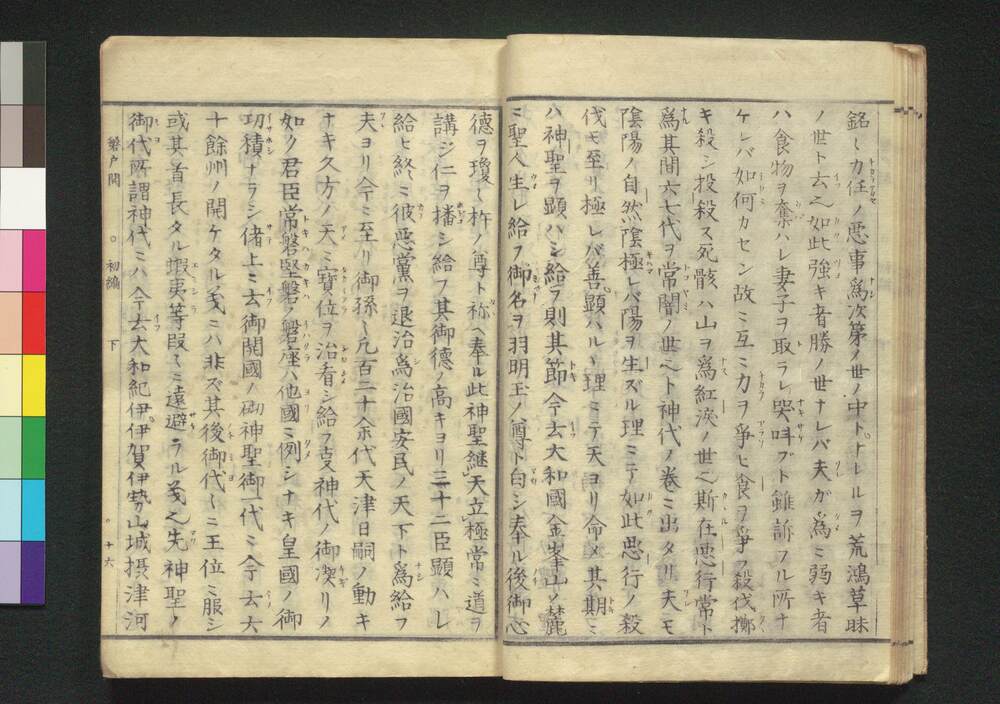 銘〻力任ノ悪事爲次第ノ世ノ中トナレルヲ荒鴻草昧
ノ世ト去之如此強キ者勝ノ世ナレバ夫ガ為ミ弱キ者
ハ食物ヲ奪ハレ妻子ヲ取ラレ哭呌ブト雖訴フル所ナ
ケレバ如何カセン故ミ互ミカヲ爭ヒ食ヲ爭フ殺伐擲
キ殺シ投殺ス死骸ハ山ヲ爲紅涙ノ世之斯在悪行常ト
爲其間六七代ヲ常闇ノ世ヘト神代ノ巻ミ出タリ夫モ
陰陽ノ自然陰極レバ陽ヲ生ズル理ミテ如此悪行ノ殺
伐モ至リ極レバ善顕ハルヽ理ミテ天ヨリ命メ其期ミ
ハ神聖ヲ顕ハシ給フ則其節今去大和國金峯山ノ麓
ミ聖人生レ給フ御名ヲ羽明玉ノ尊ト白シ奉ル後御心
德ヲ瓊〻杵ノ尊ト祢ヘ奉ル此神聖継天立極常ミ道ヲ
講ジ仁ヲ播シ給フ其御德ノ高キヨリ三十二臣顕ハレ
給ヒ終ミ彼悪黨ヲ退治爲治國安民ノ天下ト爲給フ
夫ヨリ今ミ至リ御孫〻凡百二十余代天津日嗣ノ動キ
ナキ久方ノ天ミ寶位ヲ治看シ給フ叓神代ノ御禊リノ
如ク君臣常磐堅磐ノ磐座ハ他國ミ例シナキ皇國ノ御
功積ナラシ偖上ミ去御開國ノ砌神聖御一代ミ今去六
十餘州ノ開ケタル義ミハ非ズ其後御代〻ミ王位ミ服シ
或其首長タル蝦夷等段〻ミ遠避ラル義之先神聖ノ
御代所謂神代ミハ今去大和紀伊伊賀伊勢山城摂津河
磐戸開　○初編　下　○十六